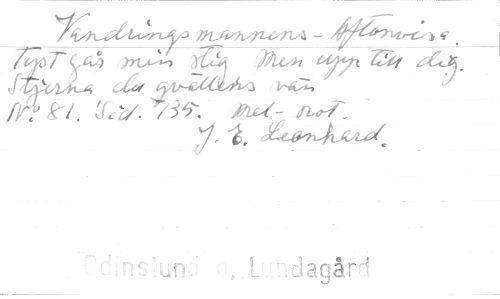 Vandringsmannens - Aftonvisa.
Tyst går min stig Men upp till dig.
Stjerna du qvällens vän
No. 81. Sid. 135. Mel - not.
J. E. Leonhard.
Odinslund o, Lundagård